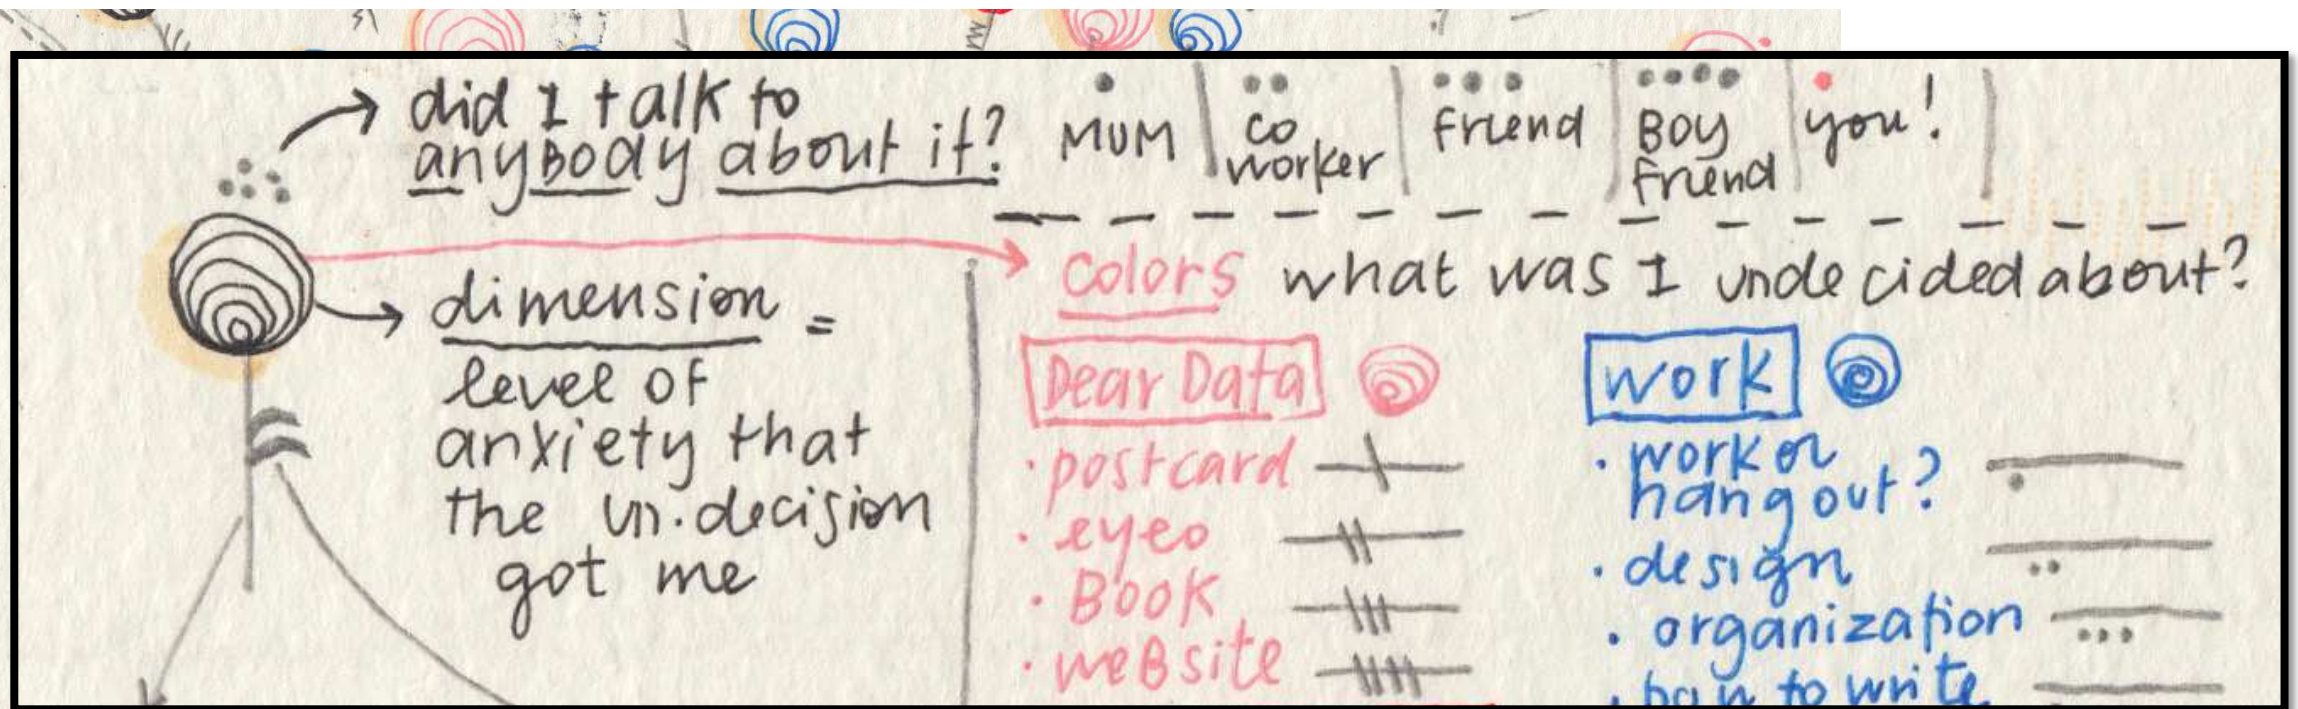 did I talk to
anybody about it?
MUM
co
worker
friend
Boy
friend
you!
dimension =
level of
anxiety that
the un.decision
got me
colors what was I undecided about?
Dear Data
• postcard
• eyeo
• Book
• website
work
• work or
hang out?
• design
• organization
• how to write